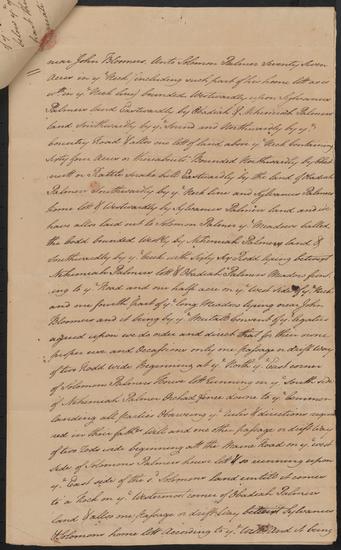 near John Bloomers. Unto Solomon Palmer Seventy Seven
Acres in yᵉ Neck including such part of his home lott as is
within yᵉ Neck line bounded Westwardly upon Sylvanus
Palmers land Eastwardly by Obadiah & Nehemiah Palmers
land Southwardly by yᵉ Sound and Northwardly by yᵉ
Country Road & also one lott of land above yᵉ Neck Containing
Sixty four Acres or thereabouts Bounded Northwardly by
or Rattle Snake hill Eastwardly by the land of Obadiah
Palmer Southwardly by yᵉ Neck line and Sylvanus Palmers
home lott & Westwardly by Sylvanus Palmers land and we
have allso laid out to Solomon Palmer yᵉ Meadow called
the bounded Westly by Nehemiah Palmers land &
Southwardly by yᵉ Creek with Eighty Rodd lying betwixt
Nehemiah Palmers lott & Obadiah Palmers Meadow
to yᵉ Road and one half acre on yᵉ West side of yᵉ Neck
and one fourth part of yᵉ long Meadow lying near John
Bloomers and it being by yᵉ Mutall Consent of yᵉ legatees
agreed upon we do order and direct that for their more
proper use and Occasions only one passage or drift way
of two Rodd wide Beginning at yᵉ North yᵉ East corner
of Solomon Palmers House lott running on yᵉ South side
of Nehemiah Palmer Orchad fence down to yᵉ Common
landing all parties Observing yᵉ rules & directions required
in their fathers Will and one other passage or drift way
of two Rods wide beginning att the Maine Road on yᵉ East
side of Solomons Palmers house lott & so running upon
yᵉ East side of the sᵈ Solomons land untill it comes
to a Rock on yᵉ Westermost corner of Obadiah Palmers
land & allso one passage or drift way betwixt Sylvanus
& Solomons home lott According to yᵉ And it being